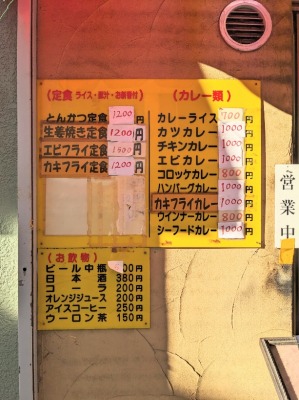 (定食 ライス・豚汁・お新香付)
とんかつ定食 1200円
生姜焼き定食 1200円
エビフライ定食 1300円
カキフライ定食 1200円
(カレー類)
カレーライス 700円
カツカレー 1000円
チキンカレー 1000円
エビカレー 1000円
コロッケカレー 800円
ハンバーグカレー 1000円
カキフライカレー 1000円
ウインナーカレー 800円
シーフードカレー 1000円
(お飲物)
ビール中瓶 00円
日本酒 380円
コーラ 200円
オレンジジュース 200円
アイスコーヒー 250円
ウーロン茶 150円
営業中